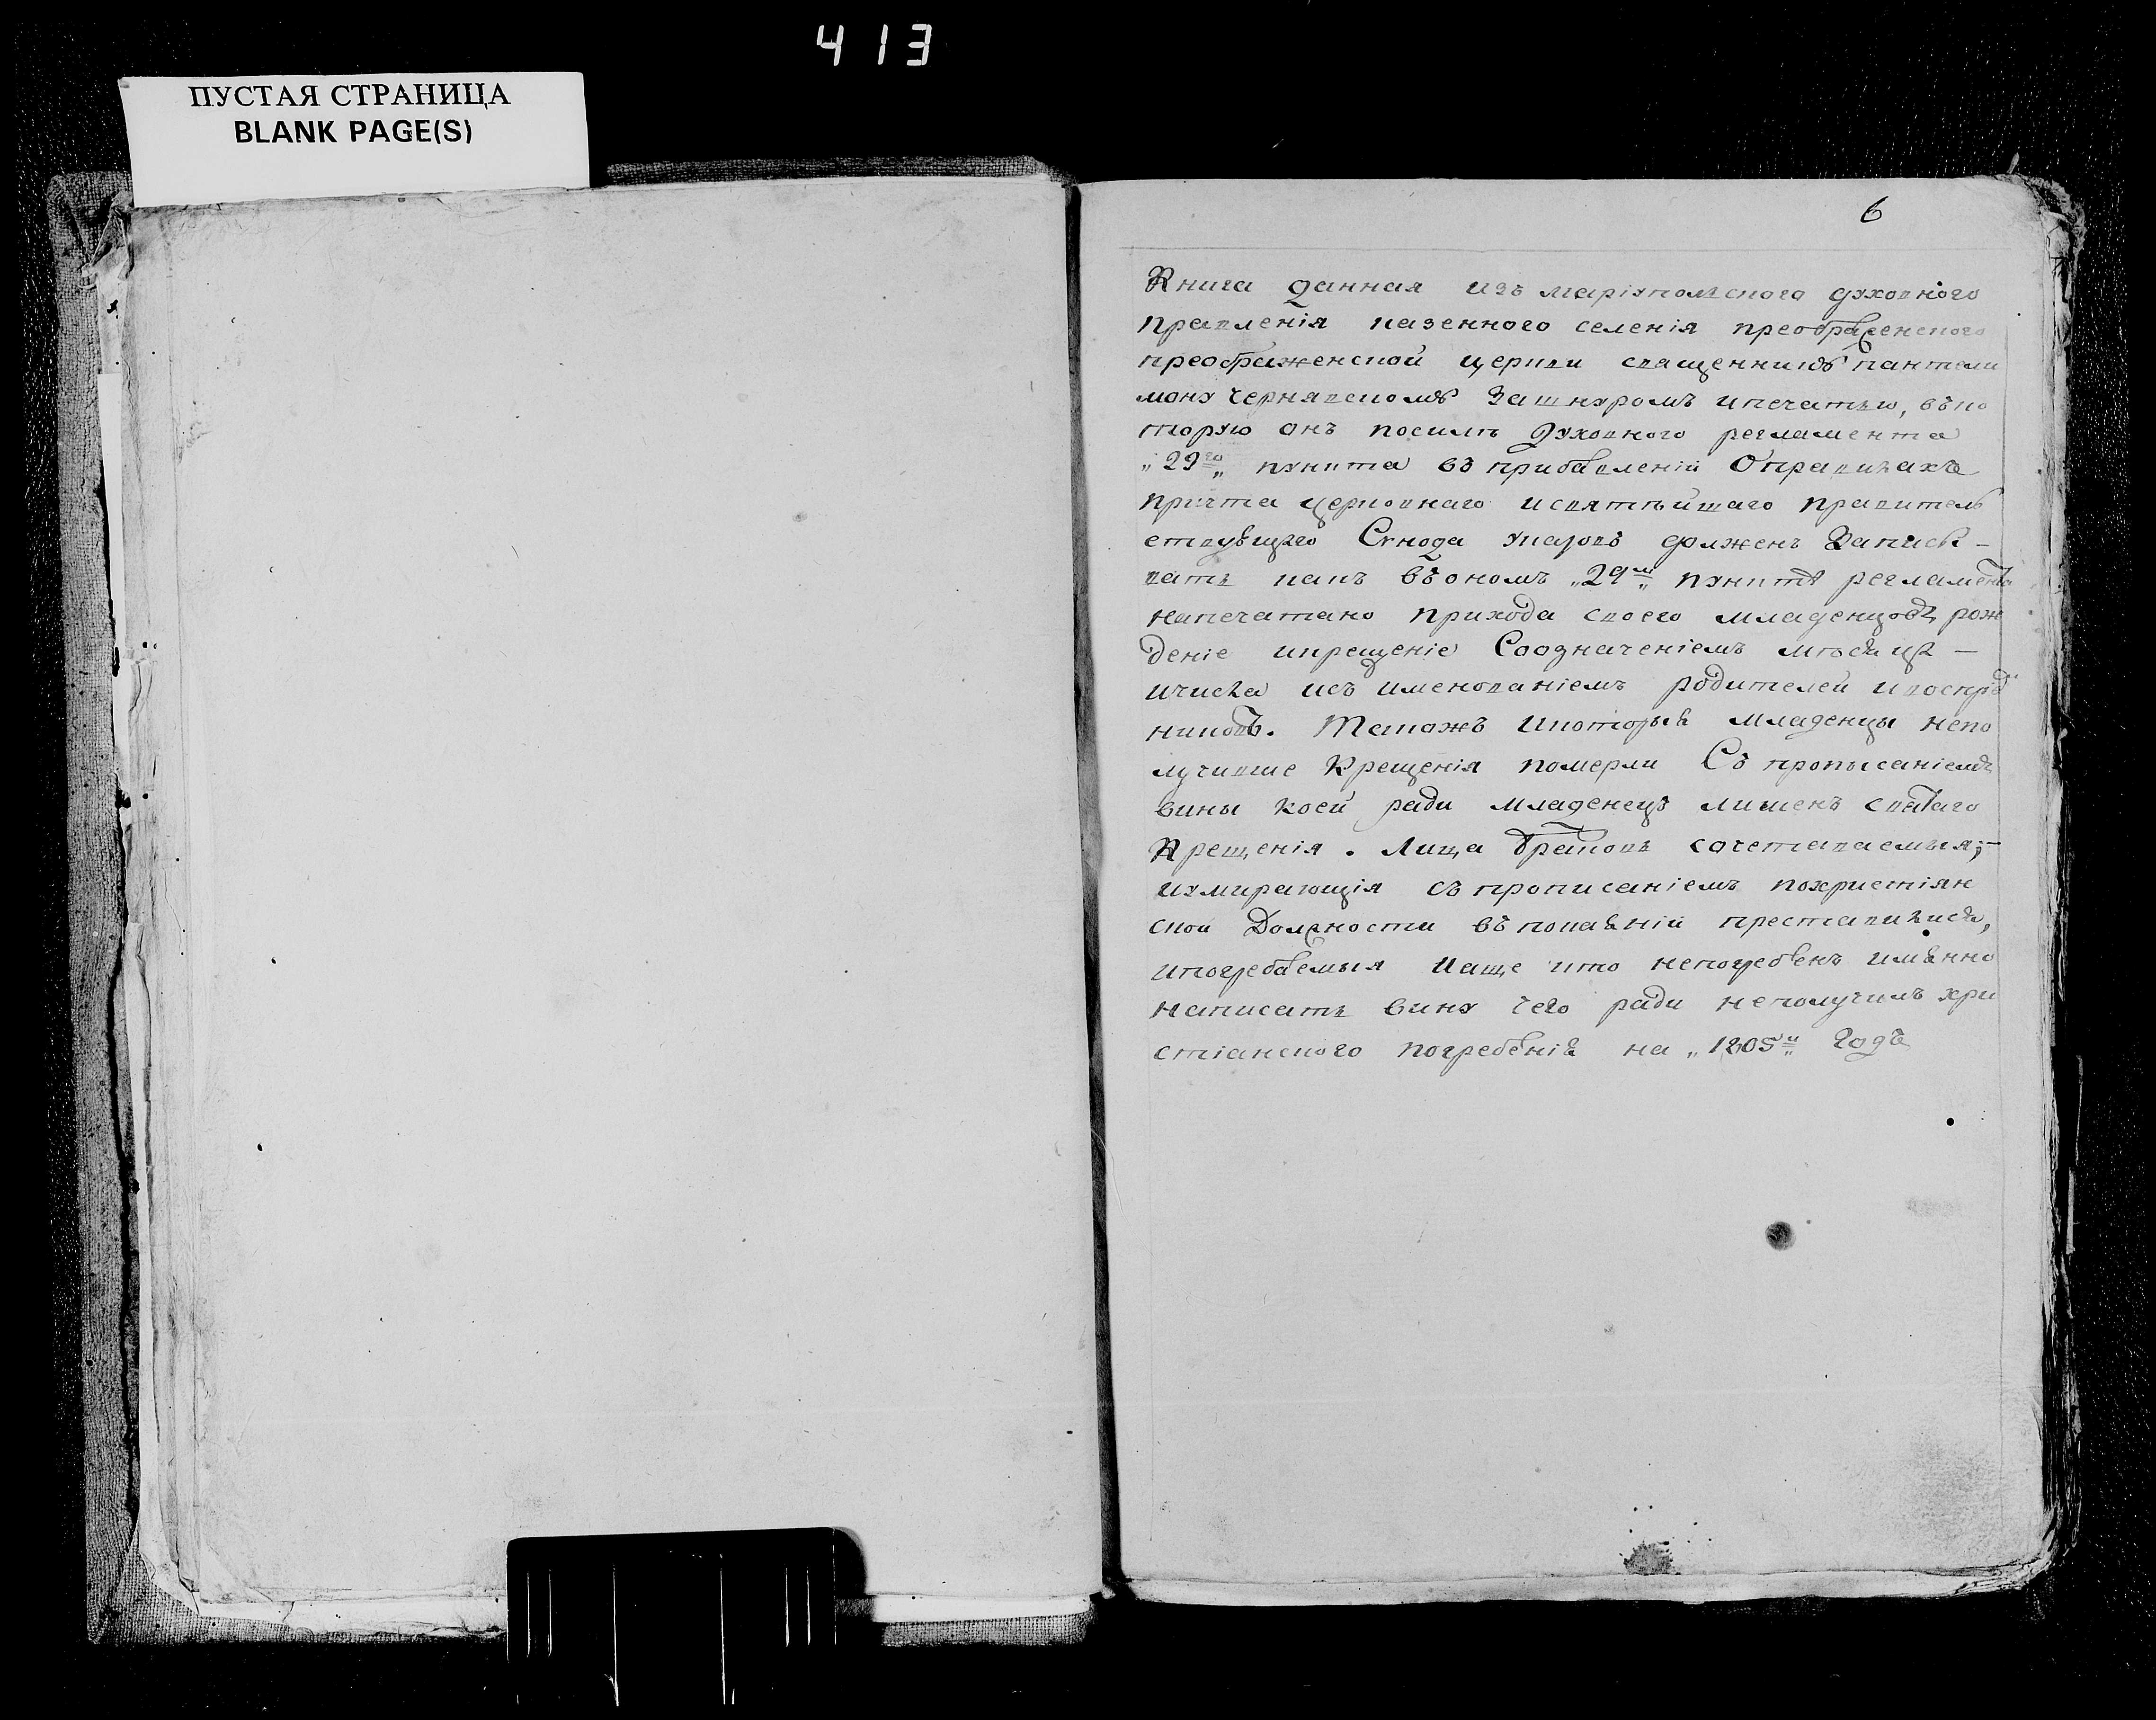 413
ПУСТАЯ СТРАНИЦА
BLANK PAGE(S)
6
Книга данная изъ маріупольского духовного
правленія казенного селенія преображенского
преображенской церкви священнику пантели
мону Чернявскому Зашнуромъ ипечатью, въко
торую онъ посилѣ Духовного регламента
„29го„ пункта въ прибавленіи Оправилахъ
причта церковнаго исвятѣйшаго правитель
ствующаго Сѵнода указовъ должен Записы-
вать какъ въономъ „29м„ пунктѣ регламента
напечатано прихода своего младенцовъ рож
деніе икрещеніе Соозначеніемъ мѣсяца -
ичисла исъ именованіемъ родителей ивоспріе
никовъ. Такожъ Икоторые младенцы непо
лучивше Крещенія померли Съ прописаніемъ
вины коей ради младенецъ лишенъ святаго
Крещенія. Лица бракомъ сочетаваемыя;-
иумирающія съ прописаніемъ похристіян
ской Должности въ покаяніи преставились,
ипогребаемыя Иаще кто непогребенъ имянно
написать вину чего ради неполучилъ хри
стіанского погребенія на „1805й„ Годъ